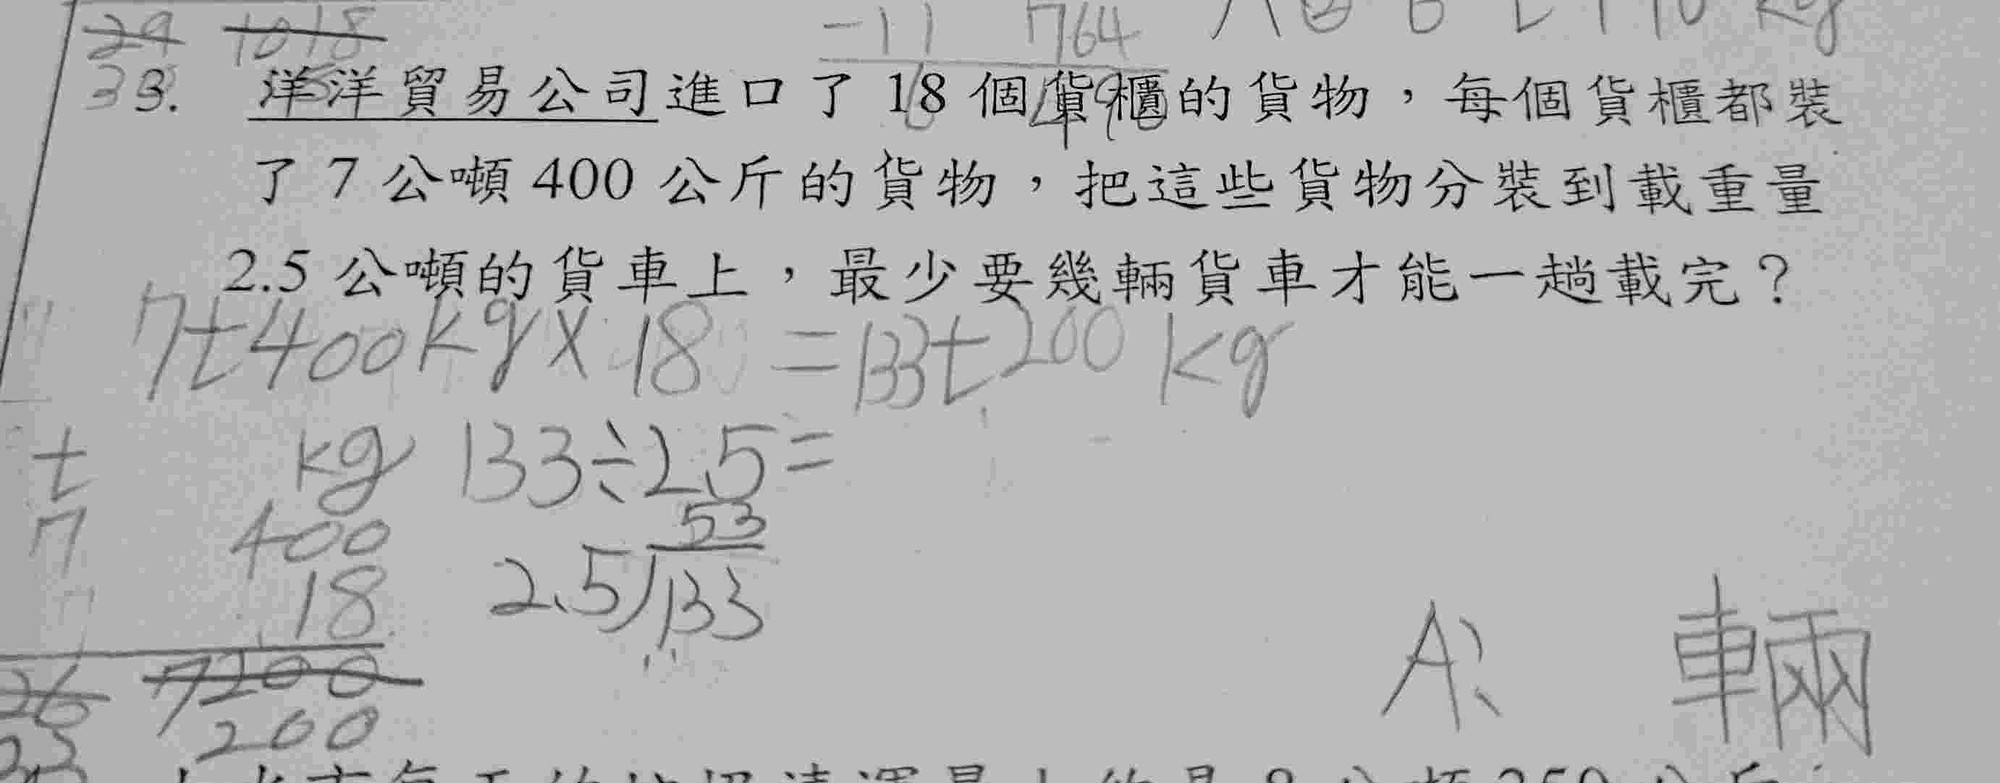 29 1018
-11 764
3. 洋洋貿易公司進口了 18 個貨櫃的貨物，每個貨櫃都裝
了 7 公噸 400 公斤的貨物，把這些貨物分裝到載重量
2.5 公噸的貨車上，最少要幾輛貨車才能一趟載完？
7t400kg×18=133t200kg
t kg 133÷2.5=
7 400 53
18 2.5 133
26 7200
200
A: 輛